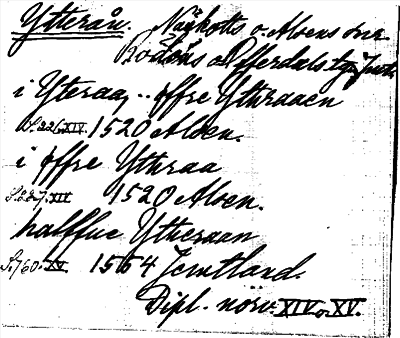 Ytterån. Näskotts o. Alsens snr
Rödöns o Offerdals tg. Jmtl.
i Yteraa, .. øffre Ythraaen
S. 226. XIV. 1520 Alsen.
i øffre Ythraa
S. 227. XIV 1520 Alsen.
halffue Ytheraan
S. 760. XV 1564 Jemtland.
Dipl. norv. XIV o XV.